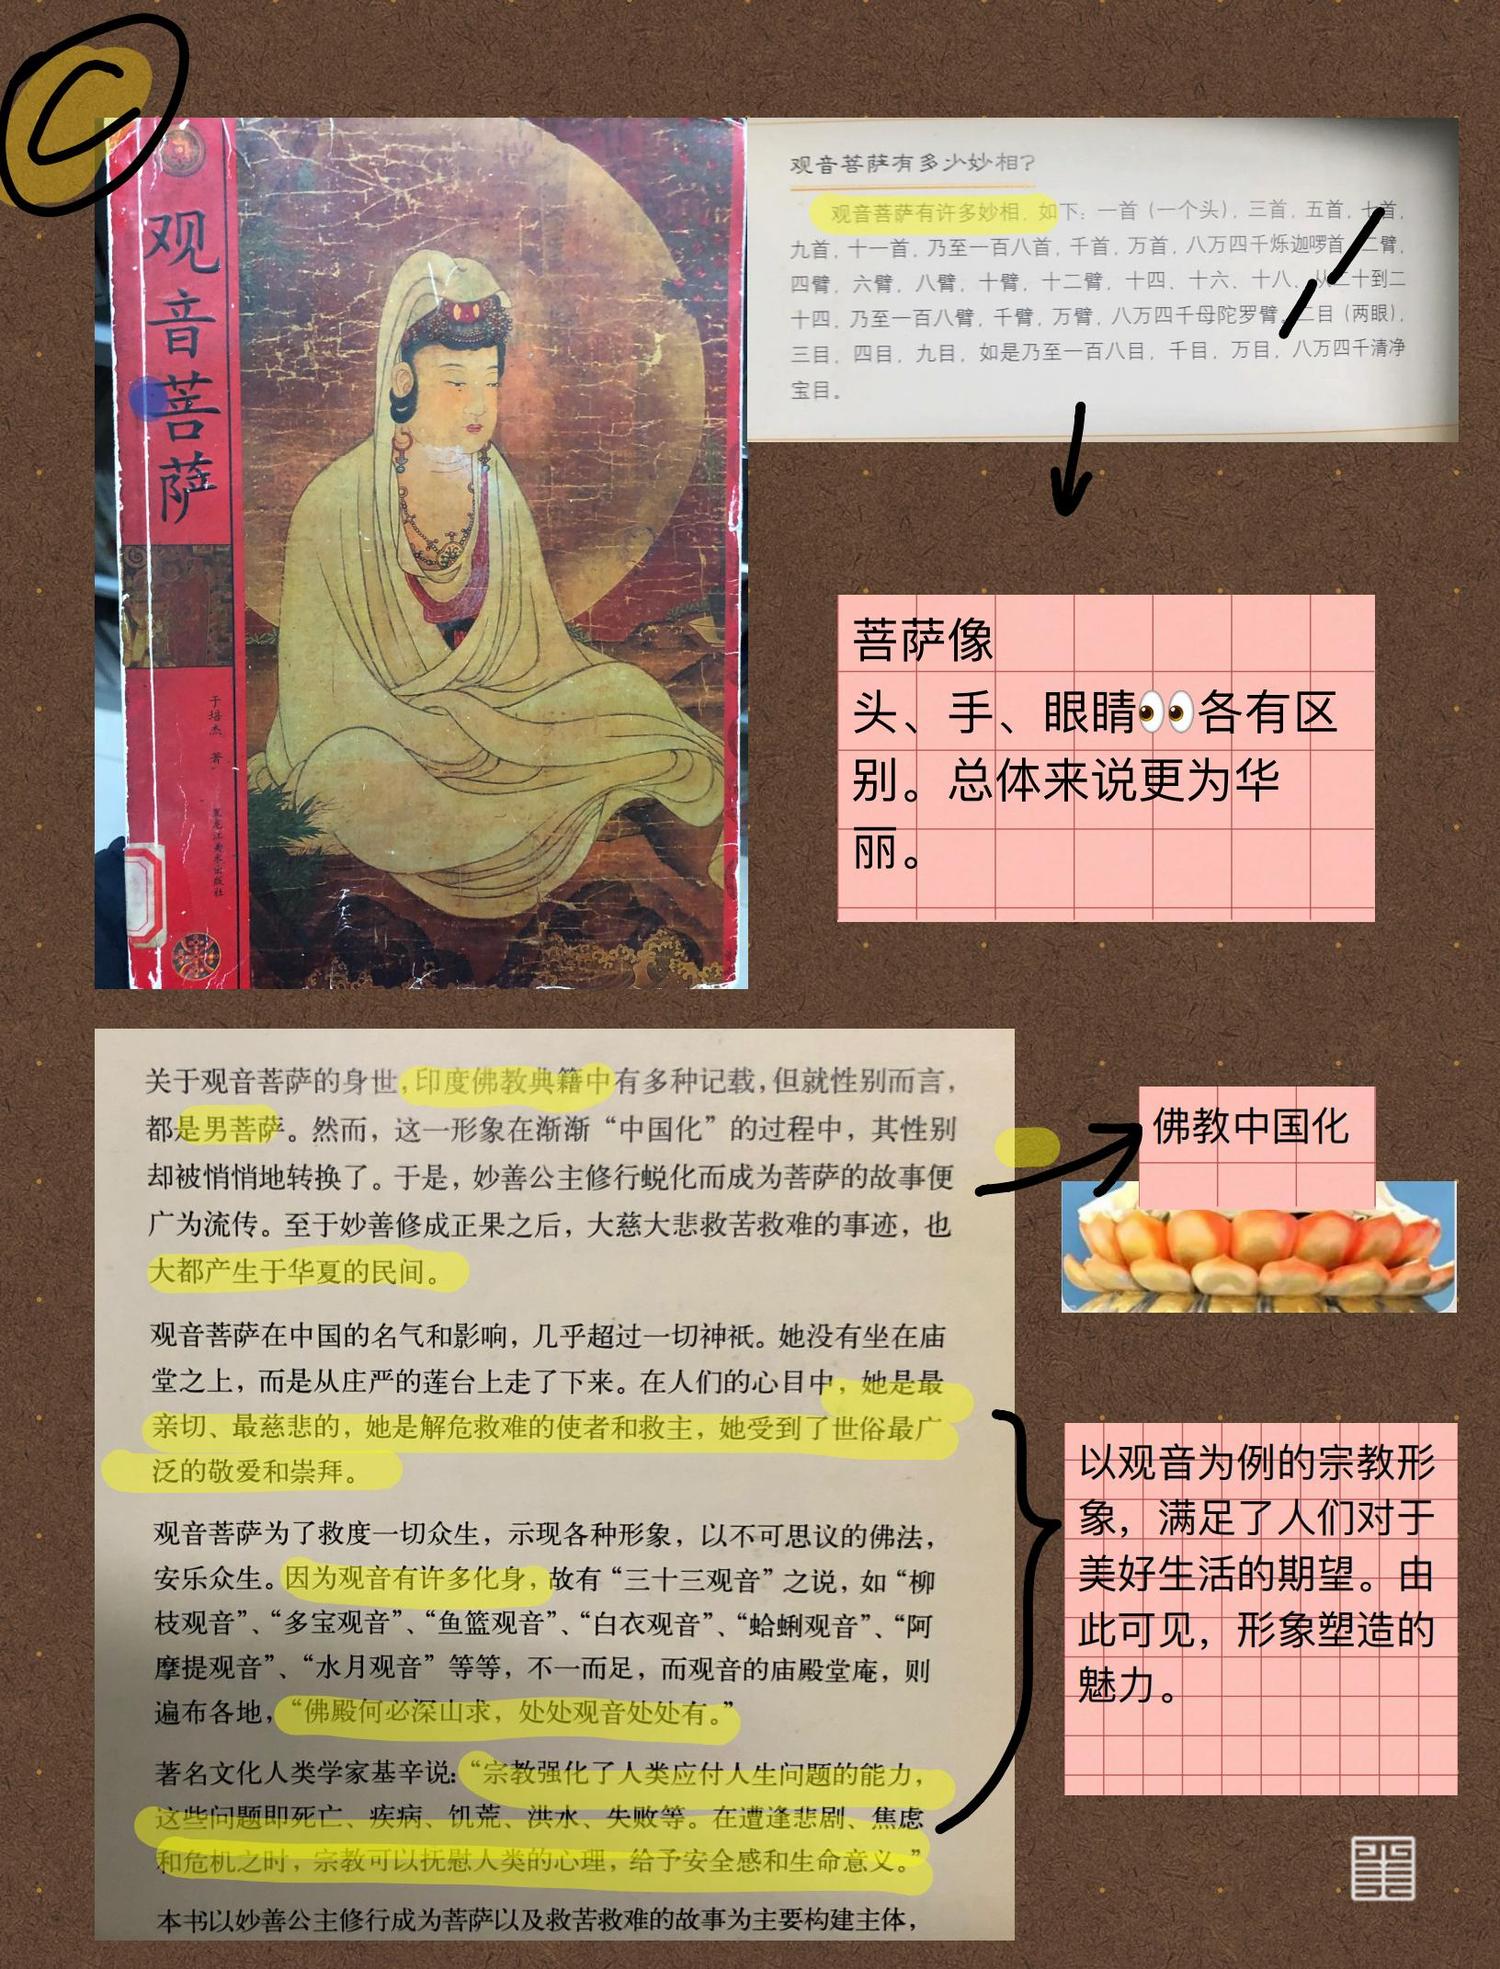 C
观音菩萨
于培杰 著
黑龙江美术出版社
观音菩萨有多少妙相?
观音菩萨有许多妙相，如下：一首（一个头），三首，五首，七首，
九首，十一首，乃至一百八首，千首，万首，八万四千烁迦啰首，二臂，
四臂，六臂，八臂，十臂，十二臂，十四、十六、十八、从二十到二
十四，乃至一百八臂，千臂，万臂，八万四千母陀罗臂，二目（两眼），
三目，四目，九目，如是乃至一百八目，千目，万目，八万四千清净
宝目。
菩萨像
头、手、眼睛👀各有区
别。总体来说更为华
丽。
关于观音菩萨的身世，印度佛教典籍中有多种记载，但就性别而言，
都是男菩萨。然而，这一形象在渐渐“中国化”的过程中，其性别
却被悄悄地转换了。于是，妙善公主修行蜕化而成为菩萨的故事便
广为流传。至于妙善修成正果之后，大慈大悲救苦救难的事迹，也
大都产生于华夏的民间。
观音菩萨在中国的名气和影响，几乎超过一切神祇。她没有坐在庙
堂之上，而是从庄严的莲台上走了下来。在人们的心目中，她是最
亲切、最慈悲的，她是解危救难的使者和救主，她受到了世俗最广
泛的敬爱和崇拜。
观音菩萨为了救度一切众生，示现各种形象，以不可思议的佛法，
安乐众生。因为观音有许多化身，故有“三十三观音”之说，如“柳
枝观音”、“多宝观音”、“鱼篮观音”、“白衣观音”、“蛤蜊观音”、“阿
摩提观音”、“水月观音”等等，不一而足，而观音的庙殿堂庵，则
遍布各地，“佛殿何必深山求，处处观音处处有。”
著名文化人类学家基辛说：“宗教强化了人类应付人生问题的能力，
这些问题即死亡、疾病、饥荒、洪水、失败等。在遭逢悲剧、焦虑
和危机之时，宗教可以抚慰人类的心理，给予安全感和生命意义。”
本书以妙善公主修行成为菩萨以及救苦救难的故事为主要构建主体，
佛教中国化
以观音为例的宗教形
象，满足了人们对于
美好生活的期望。由
此可见，形象塑造的
魅力。